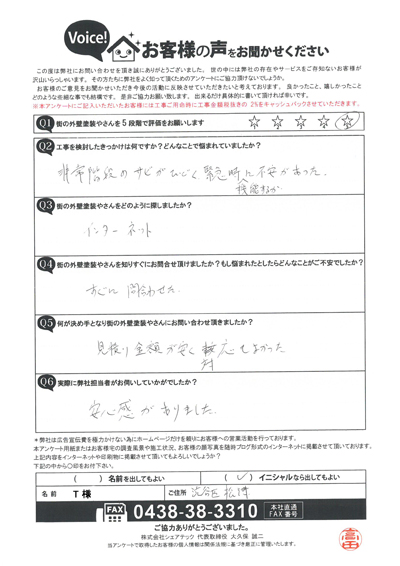 Voice!
お客様の声をお聞かせください
この度は弊社にお問い合わせを頂き誠にありがとうございました。世の中には弊社の存在やサービスをご存知ないお客様が
沢山いらっしゃいます。その方たちに弊社をよく知って頂くためのアンケートにご協力頂けないでしょうか。
お客様のご意見をお聞かせいただき今後の活動に反映させていただきたいと考えております。良かったこと、嬉しかったこと
どのような些細な事でも結構です。是非ご協力お願い致します。出来るだけ具体的に書いて頂ければ幸いです。
※本アンケートにご記入いただいたお客様には工事ご用命時に工事金額税抜きの2%をキャッシュバックさせていただきます。
Q1 街の外壁塗装やさんを5段階で評価をお願いします ☆ ☆ ☆ ☆ ☆
Q2 工事を検討したきっかけは何ですか?どんなことで悩まれていましたか?
非常階段のサビがひどく緊急時に不安があった。
Q3 街の外壁塗装やさんをどのように探しましたか?
インターネット
Q4 街の外壁塗装やさんを知りすぐにお問合せ頂けましたか?もし悩まれたとしたらどんなことがご不安でしたか?
すぐに問合わせた.
Q5 何が決め手となり街の外壁塗装やさんにお問い合わせ頂きましたか?
見積り金額が安く 対応もよかった
Q6 実際に弊社担当者がお伺いしていかがでしたか?
安心感がありました.
*弊社は広告宣伝費を極力かけない為にホームページだけを頼りにお客様への営業活動を行っております。
本アンケート用紙またはお客様宅の調査風景や施工状況、お客様の顔写真を随時ブログ形式のインターネットに掲載させて頂いております。
上記内容をインターネットや印刷物に掲載させて頂いてもよろしいでしょうか?
下記の中から○印をお付下さい。
( )名前を出してもよい ( ✓ )イニシャルなら出してもよい
名前 T様 ご住所 渋谷区松濤
FAX 0438-38-3310 本社直通 FAX番号
ご協力ありがとうございました。
株式会社シェアテック 代表取締役 大久保 誠二
当アンケートで取得したお客様の個人情報は関係法規に基づき厳正に管理いたします。